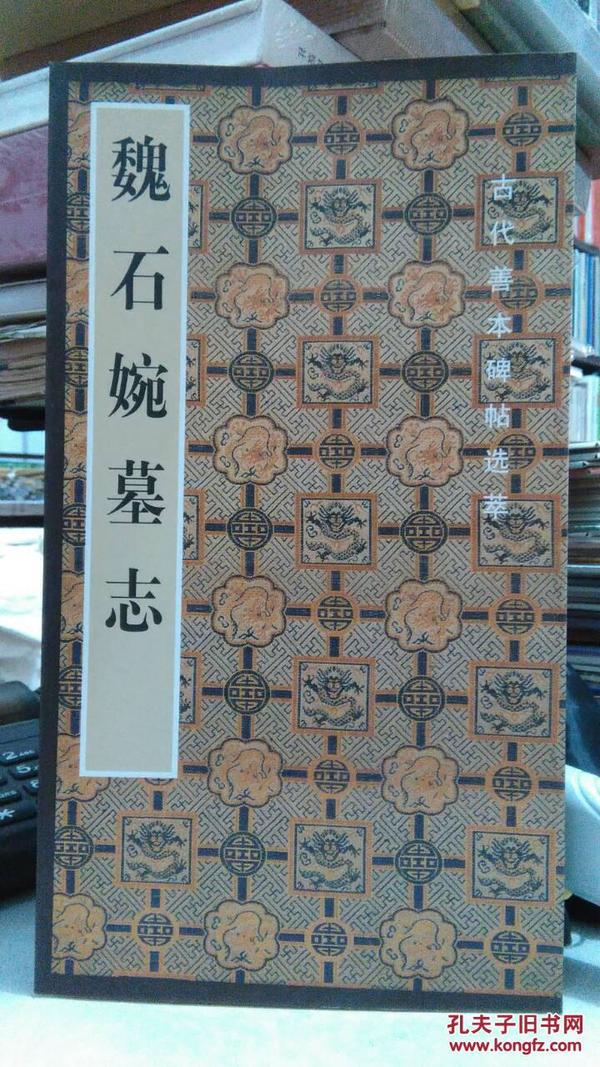 魏石婉墓志
古代善本碑帖选萃
孔夫子旧书网
www.kongfz.com